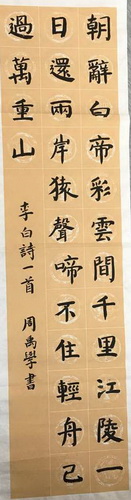 朝辭白帝彩雲間千里江陵一
日還兩岸猿聲啼不住輕舟已
過萬重山
李白詩一首 周禹學書